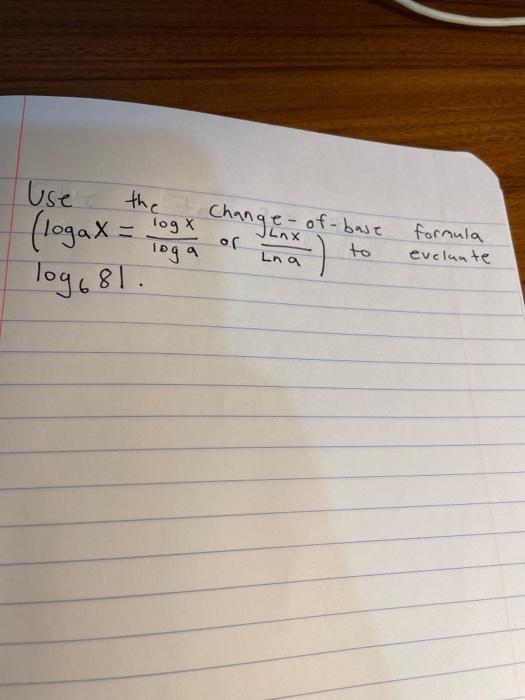 Use the change-of-base formula
(logaX = log x / log a or Lnx / Ln a) to evcluate
log₆ 81.